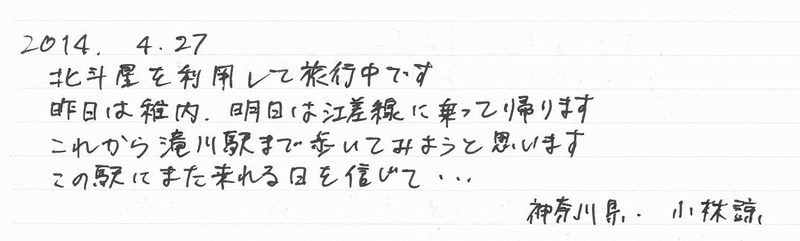 2014. 4.27
北斗星を利用して旅行中です
昨日は稚内、明日は江差線に乗って帰ります
これから滝川駅まで歩いてみようと思います
この駅にまた来れる日を信じて・・・
神奈川県. 小林諒